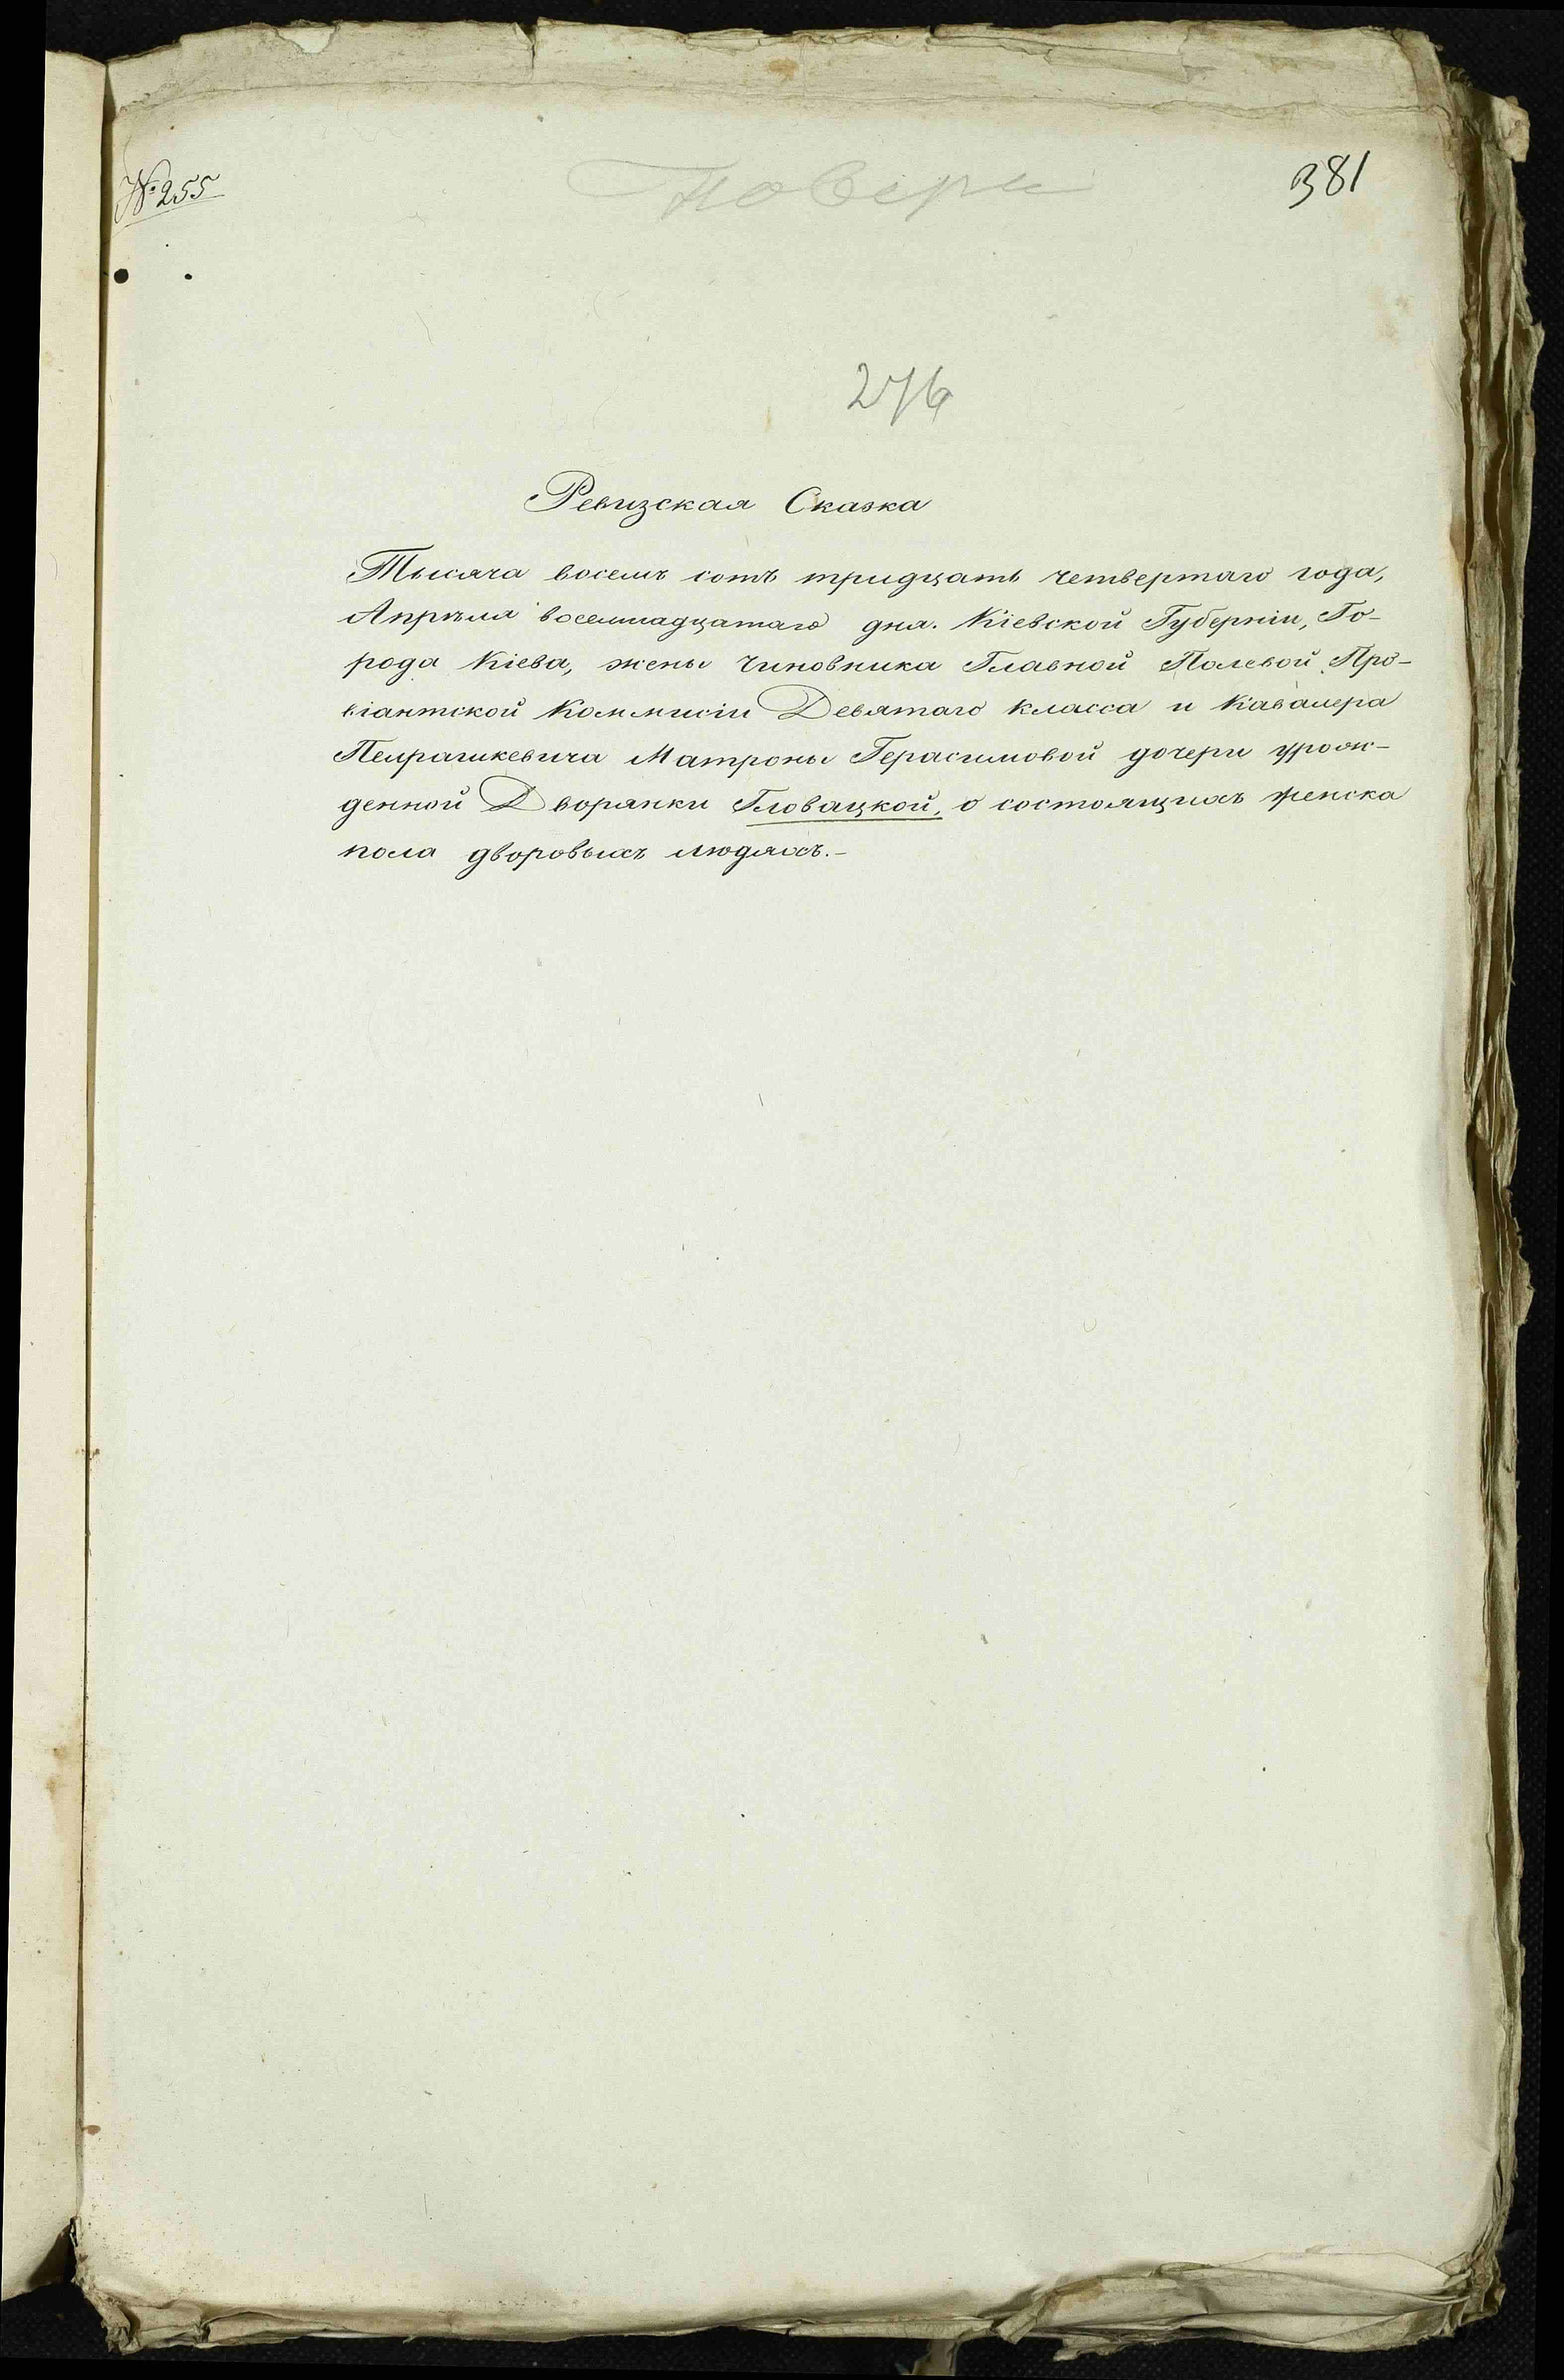 № 255
Повери
381
276
Ревизская Сказка
Тысяча восемъ сотъ тридцать четвертаго года,
Апрѣля восемнадцатаго дня. Кіевской Губерніи, Го-
рода Кіева, жены Чиновника Главной Полевой Про-
віантской Коммисіи Девятаго класса и Кавалера
Петрашкевича Матроны Герасимовой дочери урож-
денной Дворянки Гловацкой, о состоящихъ женска
пола дворовыхъ людяхъ.-